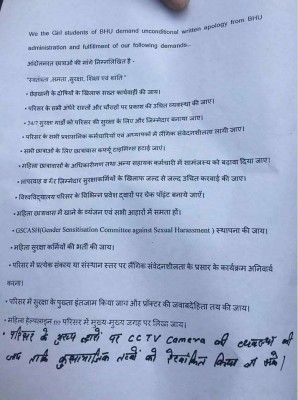 We the Girl students of BHU demand unconditional written apology from BHU
administration and fulfillment of our following demands--
आंदोलनरत छात्राओं की मांगे निम्नलिखित है -
"स्वतंत्रता ,समता ,सुरक्षा, शिक्षा एवं शांति "
• छेड़खानी के दोषियों के खिलाफ सख्त कार्यवाही की जाय।
• परिसर के सभी अंधेरे रास्तों और चौराहों पर प्रकाश की उचित व्यवस्था की जाए।
• 24/7 सुरक्षा गार्डों को परिसर की सुरक्षा के लिए और जिम्मेदार बनाया जाए।
• परिसर के सभी प्रशासनिक कर्मचारियों एवं अध्यापकों में लैंगिक संवेदनशीलता लायी जाए।
• सभी छात्राओं के लिए छात्रावास कर्फ्यू टाइमिंग्स हटाई जाए।
• महिला छात्रावासों के अधिकारीगण तथा अन्य सहायक कर्मचारी में सामंजस्य को बढ़ावा दिया जाए।
• लापरवाह व गैर ज़िम्मेदार सुरक्षाकर्मियों के खिलाफ जल्द से जल्द उचित करवाई की जाए।
• विश्वविद्यालय परिसर के विभिन्न प्रवेश द्वारों पर चेक पॉइंट बनाये जाएँ।
• महिला छात्रावास में खाने के व्यंजन एवं सभी आहारों में समता हों।
• GSCASH(Gender Sensitisation Committee against Sexual Harassment ) स्थापना की जाय।
• महिला सुरक्षा कर्मियों की भर्ती की जाय।
• परिसर में प्रत्येक संकाय या संस्थान स्तर पर लैंगिक संवेदनशीलता के प्रसार के कार्यक्रम अनिवार्य
करना।
• परिसर में सुरक्षा के पुख्ता इंतजाम किया जाय और प्रॉक्टर की जवाबदेहिता तय की जाय।
• महिला हेल्पलाइन no परिसर में मुख्य-मुख्य जगह पर लिखा जाय।
• परिसर के मुख्य द्वारों पर CCTV Camera की व्यवस्था की
जाय ताकि असामाजिक तत्वों को रेखांकित किया जा सके।